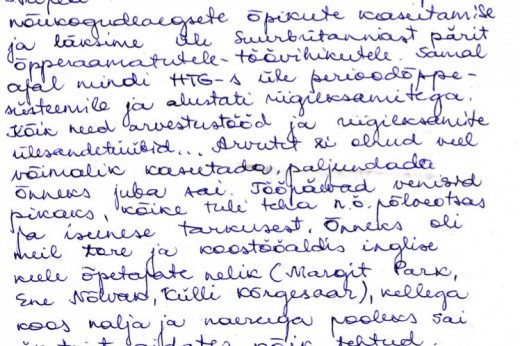 nõukogudeaegsete õpikute kasutamise
ja läksime üle Suurbritanniast pärit
õpperaamatutele-töövihikutele. Samal
ajal mindi HTG-s üle perioodõppe-
süsteemile ja alustati riigieksamitega.
Kõik need arvestustööd ja riigieksamite
ülesandetüübid... Arvutit ei olnud veel
võimalik kasutada, paljundada
õnneks juba sai. Tööpäevad venisid
pikaks, kõike tuli teha n.ö. põlveotsas
ja iseenese tarkusest. Õnneks oli
meil tore ja koostööaldis inglise
keele õpetajate nelik (Margit Park,
Ene Nõlvak, Külli Kõrgesaar), kellega
koos nalja ja naeruga pooleks sai
aidates kõik tehtud.